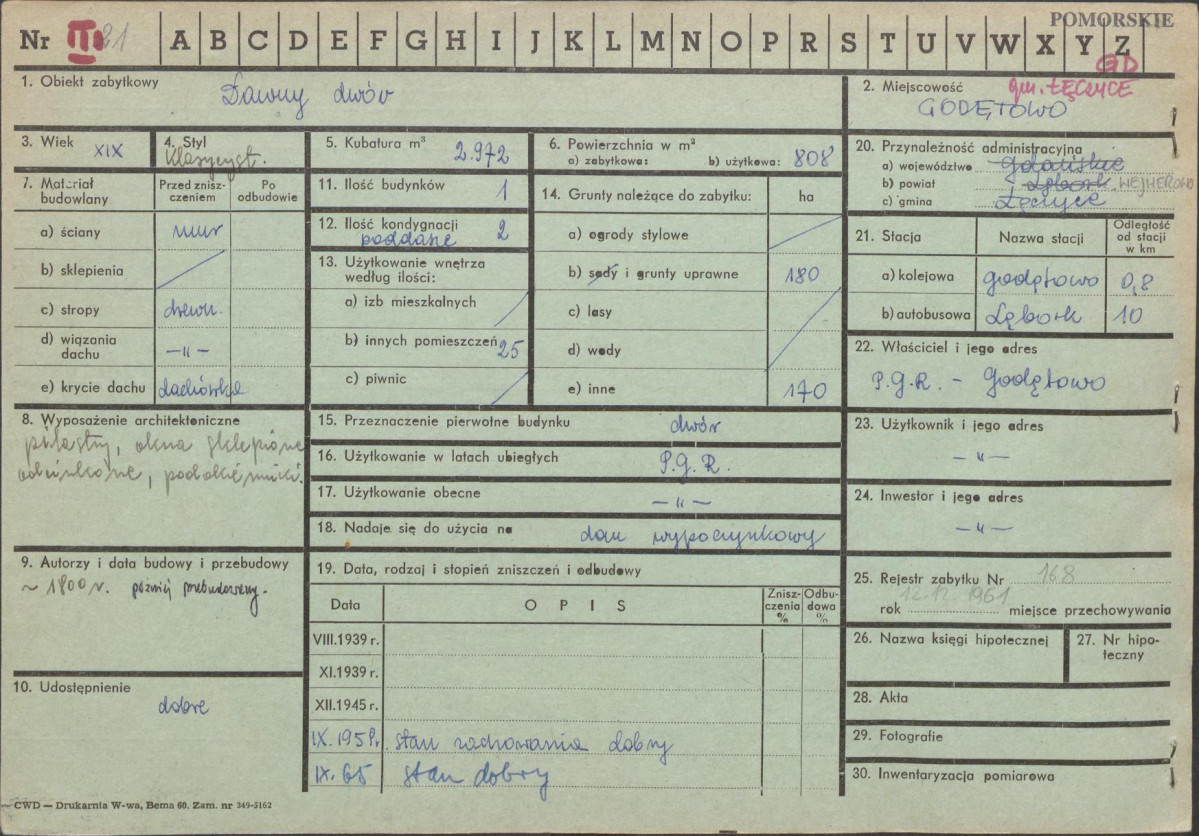 POMORSKIE
Nr III 21 A B C D E F G H I J K L M N O P R S T U V W X Y Z
GD
1. Obiekt zabytkowy
Dawny dwór
2. Miejscowość gm. ŁĘCZYCE
GODĘTOWO
3. Wiek XIX
4. Styl
Klasycyst.
5. Kubatura m³ 2.972
6. Powierzchnia w m²
a) zabytkowa: b) użytkowa: 808
20. Przynależność administracyjna
a) województwo Gdańskie
b) powiat Lębork WEJHEROWO
c) gmina Łęczyce
7. Materiał budowlany
Przed zniszczeniem
Po odbudowie
a) ściany mur
b) sklepienia
c) stropy drewn.
d) wiązania dachu —„—
e) krycie dachu dachówka
11. Ilość budynków 1
12. Ilość kondygnacji 2
poddasze
13. Użytkowanie wnętrza
według ilości:
a) izb mieszkalnych
b) innych pomieszczeń 25
c) piwnic
14. Grunty należące do zabytku: ha
a) ogrody stylowe
b) sady i grunty uprawne 180
c) lasy
d) wody
e) inne 170
21. Stacja
Nazwa stacji
Odległość od stacji w km
a) kolejowa Godętowo 0,8
b) autobusowa Lębork 10
22. Właściciel i jego adres
P.G.R. - Godętowo
8. Wyposażenie architektoniczne
pilastry, okna sklepione
odcinkowe, podokienniki.
15. Przeznaczenie pierwotne budynku dwór
16. Użytkowanie w latach ubiegłych P.G.R.
17. Użytkowanie obecne —„—
18. Nadaje się do użycia na dom wypoczynkowy
23. Użytkownik i jego adres
—„—
24. Inwestor i jego adres
—„—
9. Autorzy i data budowy i przebudowy
~ 1800 r. później przebudowany.
10. Udostępnienie
dobre
19. Data, rodzaj i stopień zniszczeń i odbudowy
Data OPIS Zniszczenia % Odbudowa %
VIII.1939 r.
XI.1939 r.
XII.1945 r.
IX.1959r. stan zachowania dobry
IX. 65 stan dobry
25. Rejestr zabytku Nr 168
rok 12.12.1961 miejsce przechowywania
26. Nazwa księgi hipotecznej
27. Nr hipoteczny
28. Akta
29. Fotografie
30. Inwentaryzacja pomiarowa
CWD — Drukarnia W-wa, Bema 60. Zam. nr 349-5162